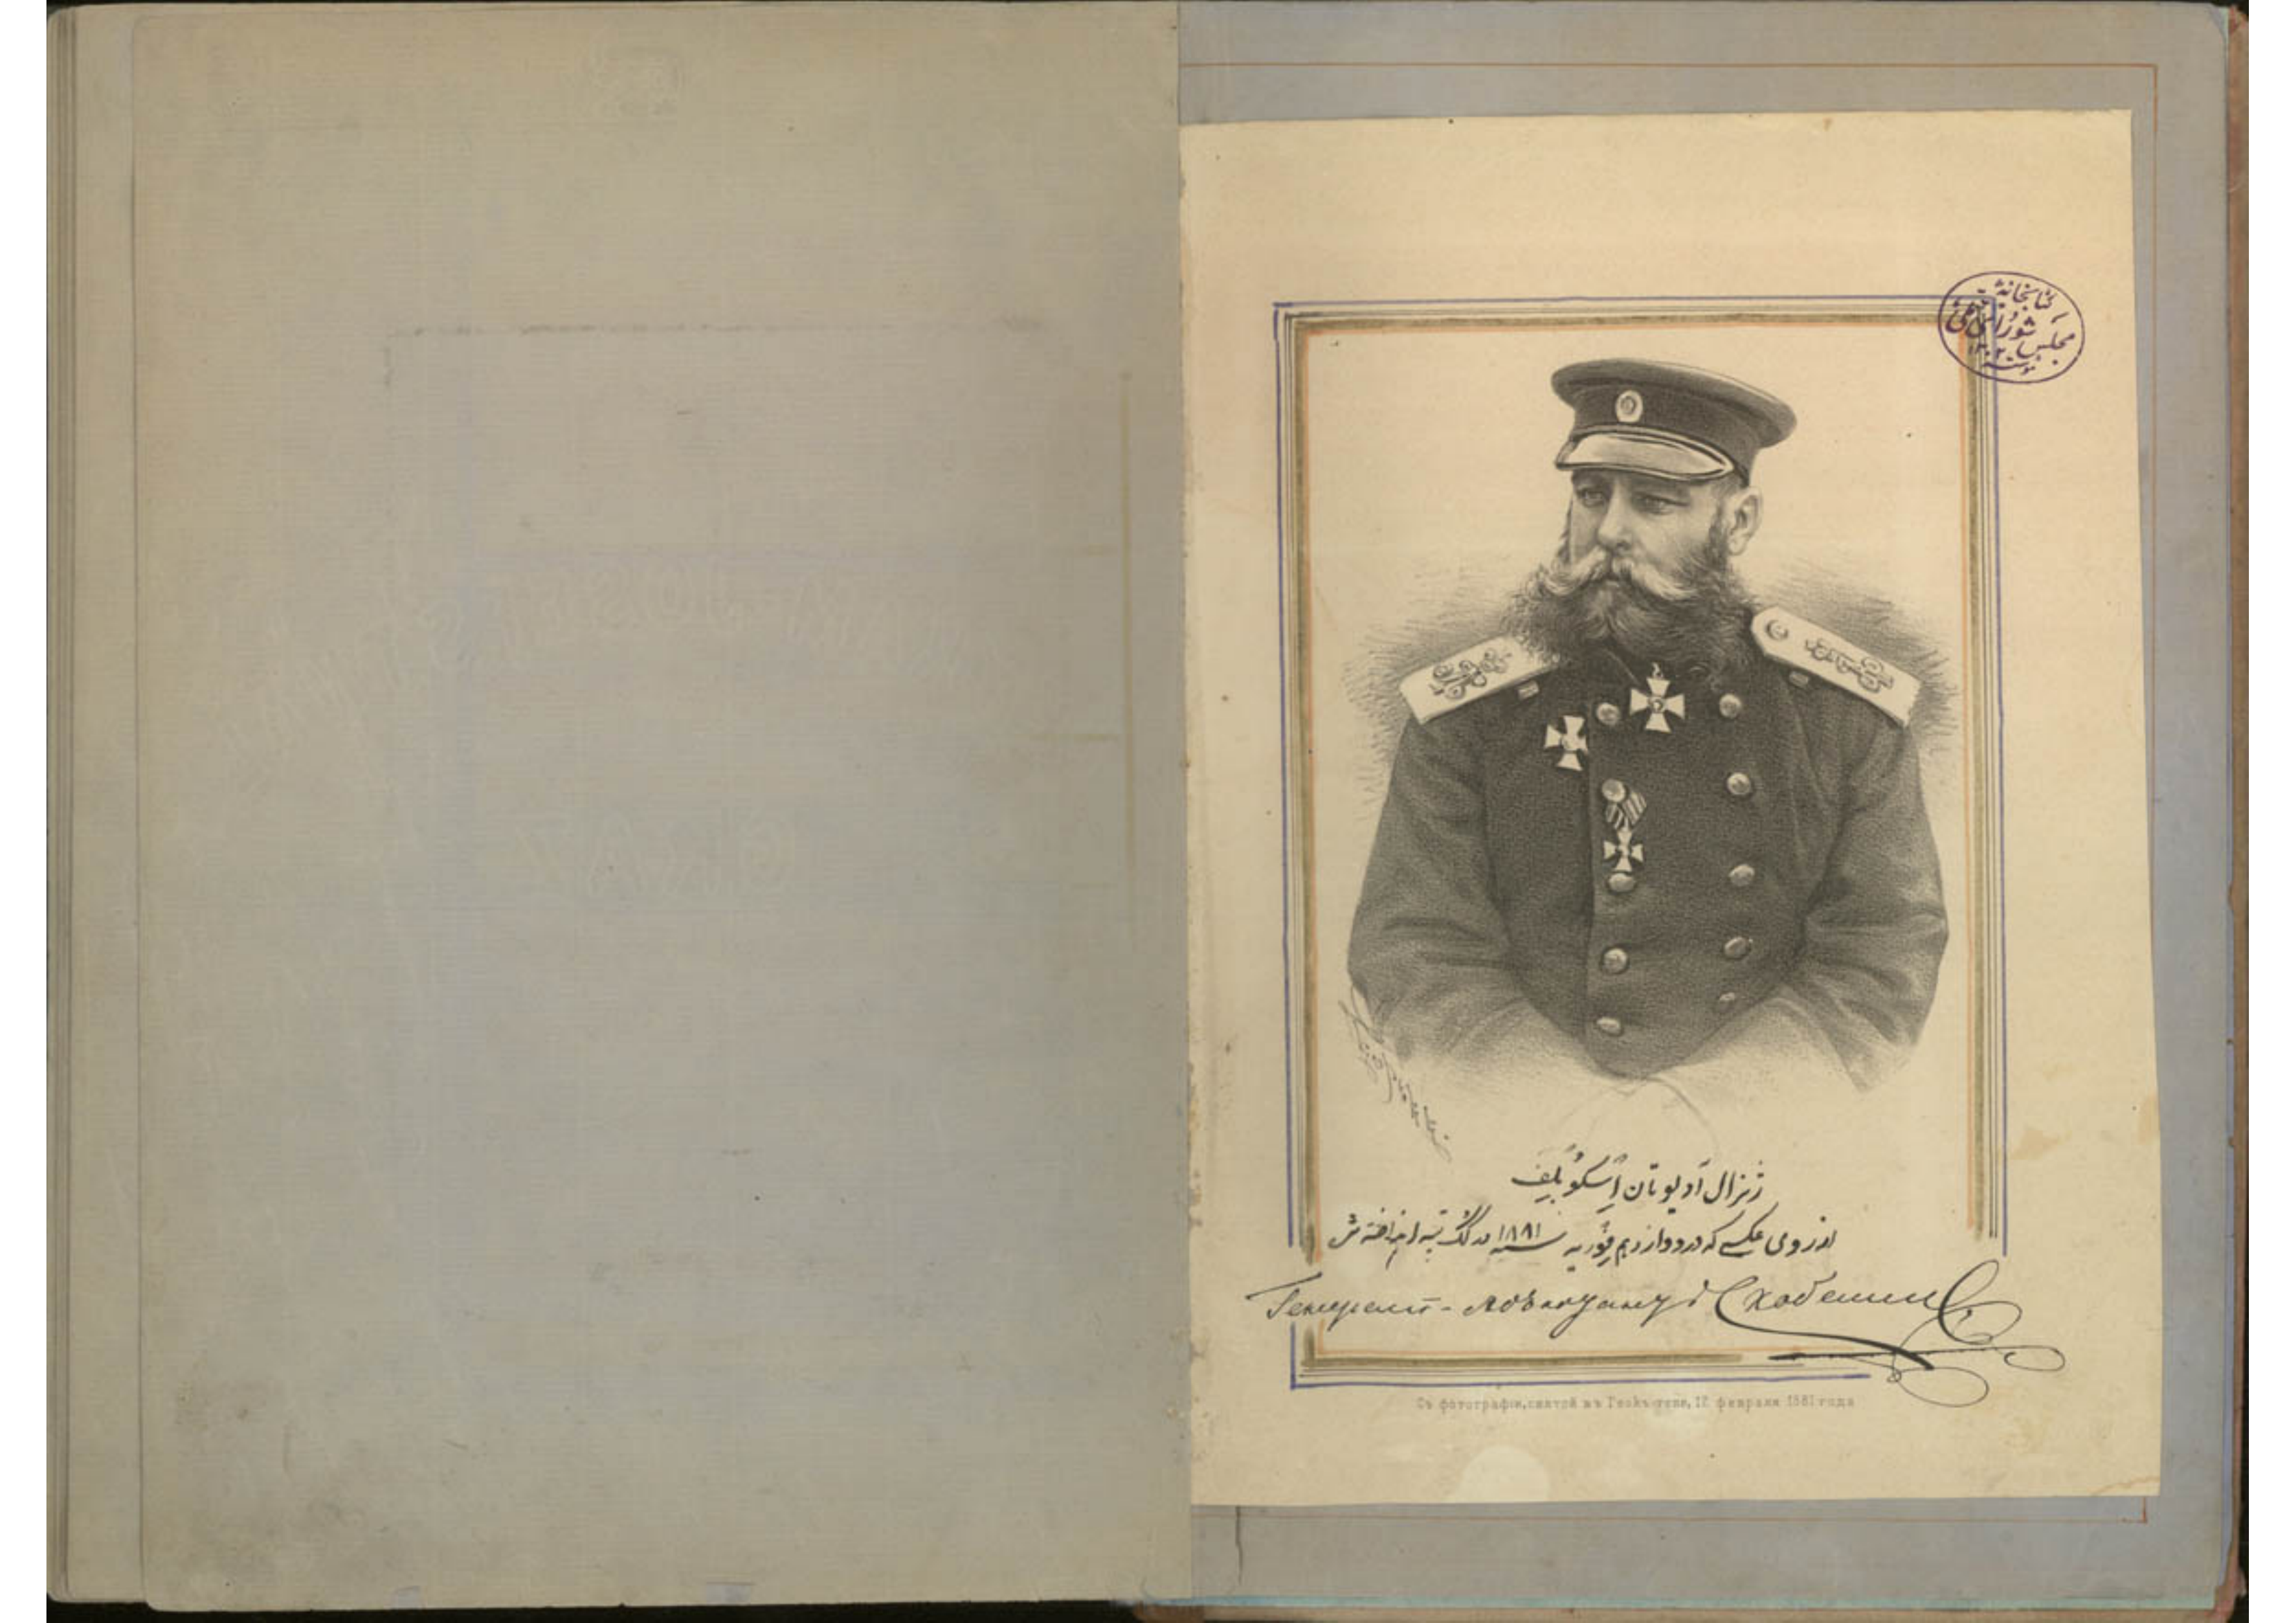 کتابخانهٔ
مجلس شورای ملی
ژنرال آدیوتان اسکوبلف
از روی عکسی که در دوازدهم فوریه سنه ۱۸۸۱ در گگ تپه انداخته شد
Генералъ-адъютантъ Скобелевъ
Съ фотографіи, снятой въ Геокъ-тепе, 12 февраля 1881 года